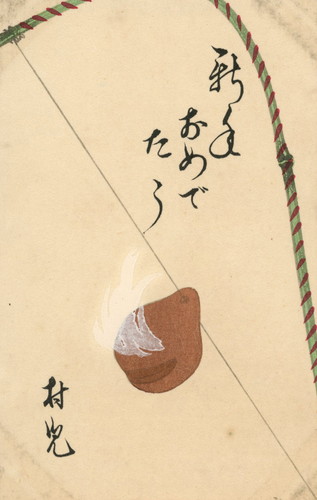 新年
おめで
たう
村児